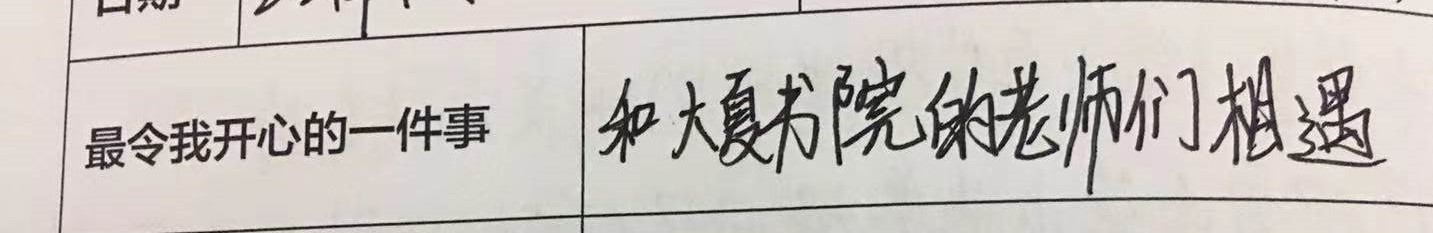 日期
最令我开心的一件事
和大夏书院的老师们相遇